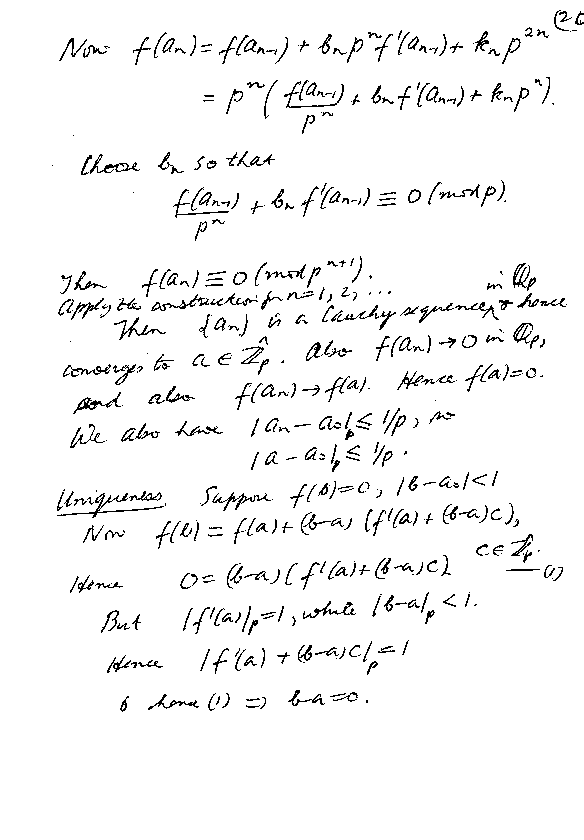 (2
Now f(aₙ) = f(aₙ₋₁) + bₙpⁿf'(aₙ₋₁) + kₙp²ⁿ
= pⁿ( f(aₙ₋₁)/pⁿ + bₙf'(aₙ₋₁) + kₙpⁿ).
Choose bₙ so that
f(aₙ₋₁)/pⁿ + bₙ f'(aₙ₋₁) ≡ 0 (mod p).
Then f(aₙ) ≡ 0 (mod pⁿ⁺¹).
Apply the construction for n=1, 2, ...
Then {aₙ} is a Cauchy sequence in ℚₚ & hence
converges to a ∈ ℤ̂ₚ. Also f(aₙ) → 0 in ℚₚ,
and also f(aₙ) → f(a). Hence f(a)=0.
We also have |aₙ − a₀|ₚ ≤ 1/p, so
|a − a₀|ₚ ≤ 1/p.
Uniqueness Suppose f(b)=0, |b−a₀|<1
Now f(b) = f(a) + (b−a) (f'(a) + (b−a)c),
c ∈ ℤ̂ₚ.
Hence 0 = (b−a)(f'(a) + (b−a)c) — (1)
But |f'(a)|ₚ=1, while |b−a|ₚ < 1.
Hence |f'(a) + (b−a)c|ₚ = 1
& hence (1) ⇒ b−a=0.